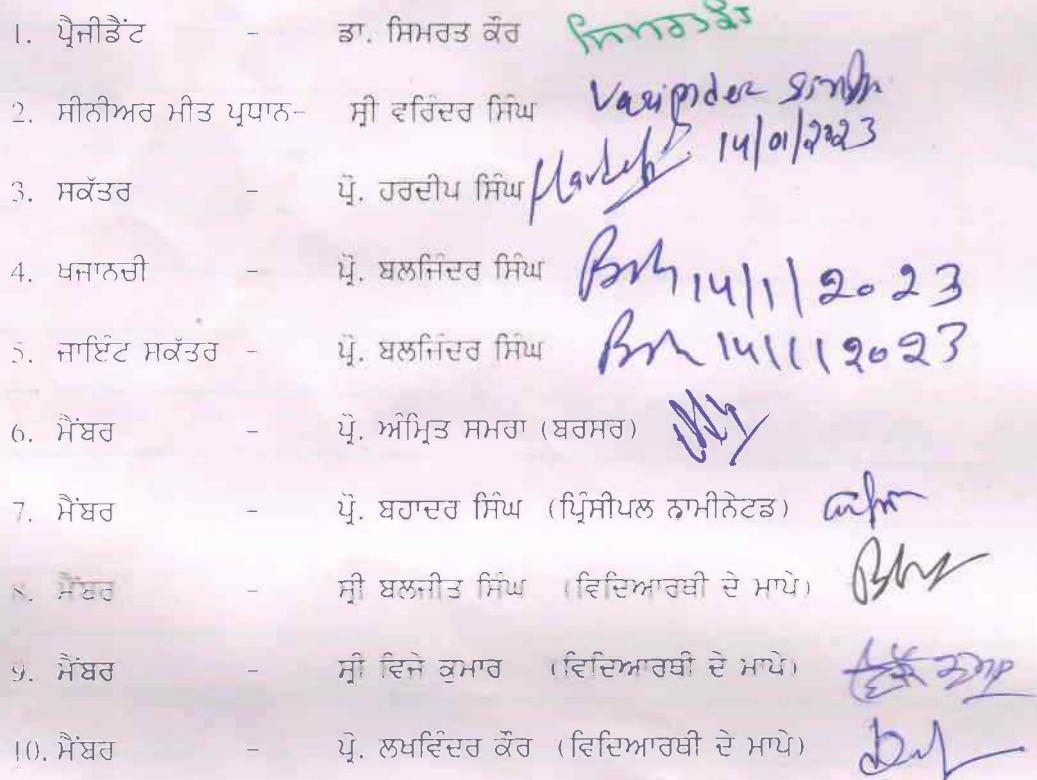 1. ਪ੍ਰੈਜੀਡੈਂਟ - ਡਾ. ਸਿਮਰਤ ਕੌਰ
2. ਸੀਨੀਅਰ ਮੀਤ ਪ੍ਰਧਾਨ- ਸ੍ਰੀ ਵਰਿੰਦਰ ਸਿੰਘ Varipnder Singh
14/01/2023
3. ਸਕੱਤਰ - ਪ੍ਰੋ. ਹਰਦੀਪ ਸਿੰਘ
4. ਖਜਾਨਚੀ - ਪ੍ਰੋ. ਬਲਜਿੰਦਰ ਸਿੰਘ 14/1/2023
5. ਜਾਇੰਟ ਸਕੱਤਰ - ਪ੍ਰੋ. ਬਲਜਿੰਦਰ ਸਿੰਘ 14/1/2023
6. ਮੈਂਬਰ - ਪ੍ਰੋ. ਅੰਮ੍ਰਿਤ ਸਮਰਾ (ਬਰਸਰ)
7. ਮੈਂਬਰ - ਪ੍ਰੋ. ਬਹਾਦਰ ਸਿੰਘ (ਪ੍ਰਿੰਸੀਪਲ ਨਾਮੀਨੇਟਡ)
8. ਮੈਂਬਰ - ਸ੍ਰੀ ਬਲਜੀਤ ਸਿੰਘ (ਵਿਦਿਆਰਥੀ ਦੇ ਮਾਪੇ)
9. ਮੈਂਬਰ - ਸ੍ਰੀ ਵਿਜੇ ਕੁਮਾਰ (ਵਿਦਿਆਰਥੀ ਦੇ ਮਾਪੇ)
10. ਮੈਂਬਰ - ਪ੍ਰੋ. ਲਖਵਿੰਦਰ ਕੌਰ (ਵਿਦਿਆਰਥੀ ਦੇ ਮਾਪੇ)